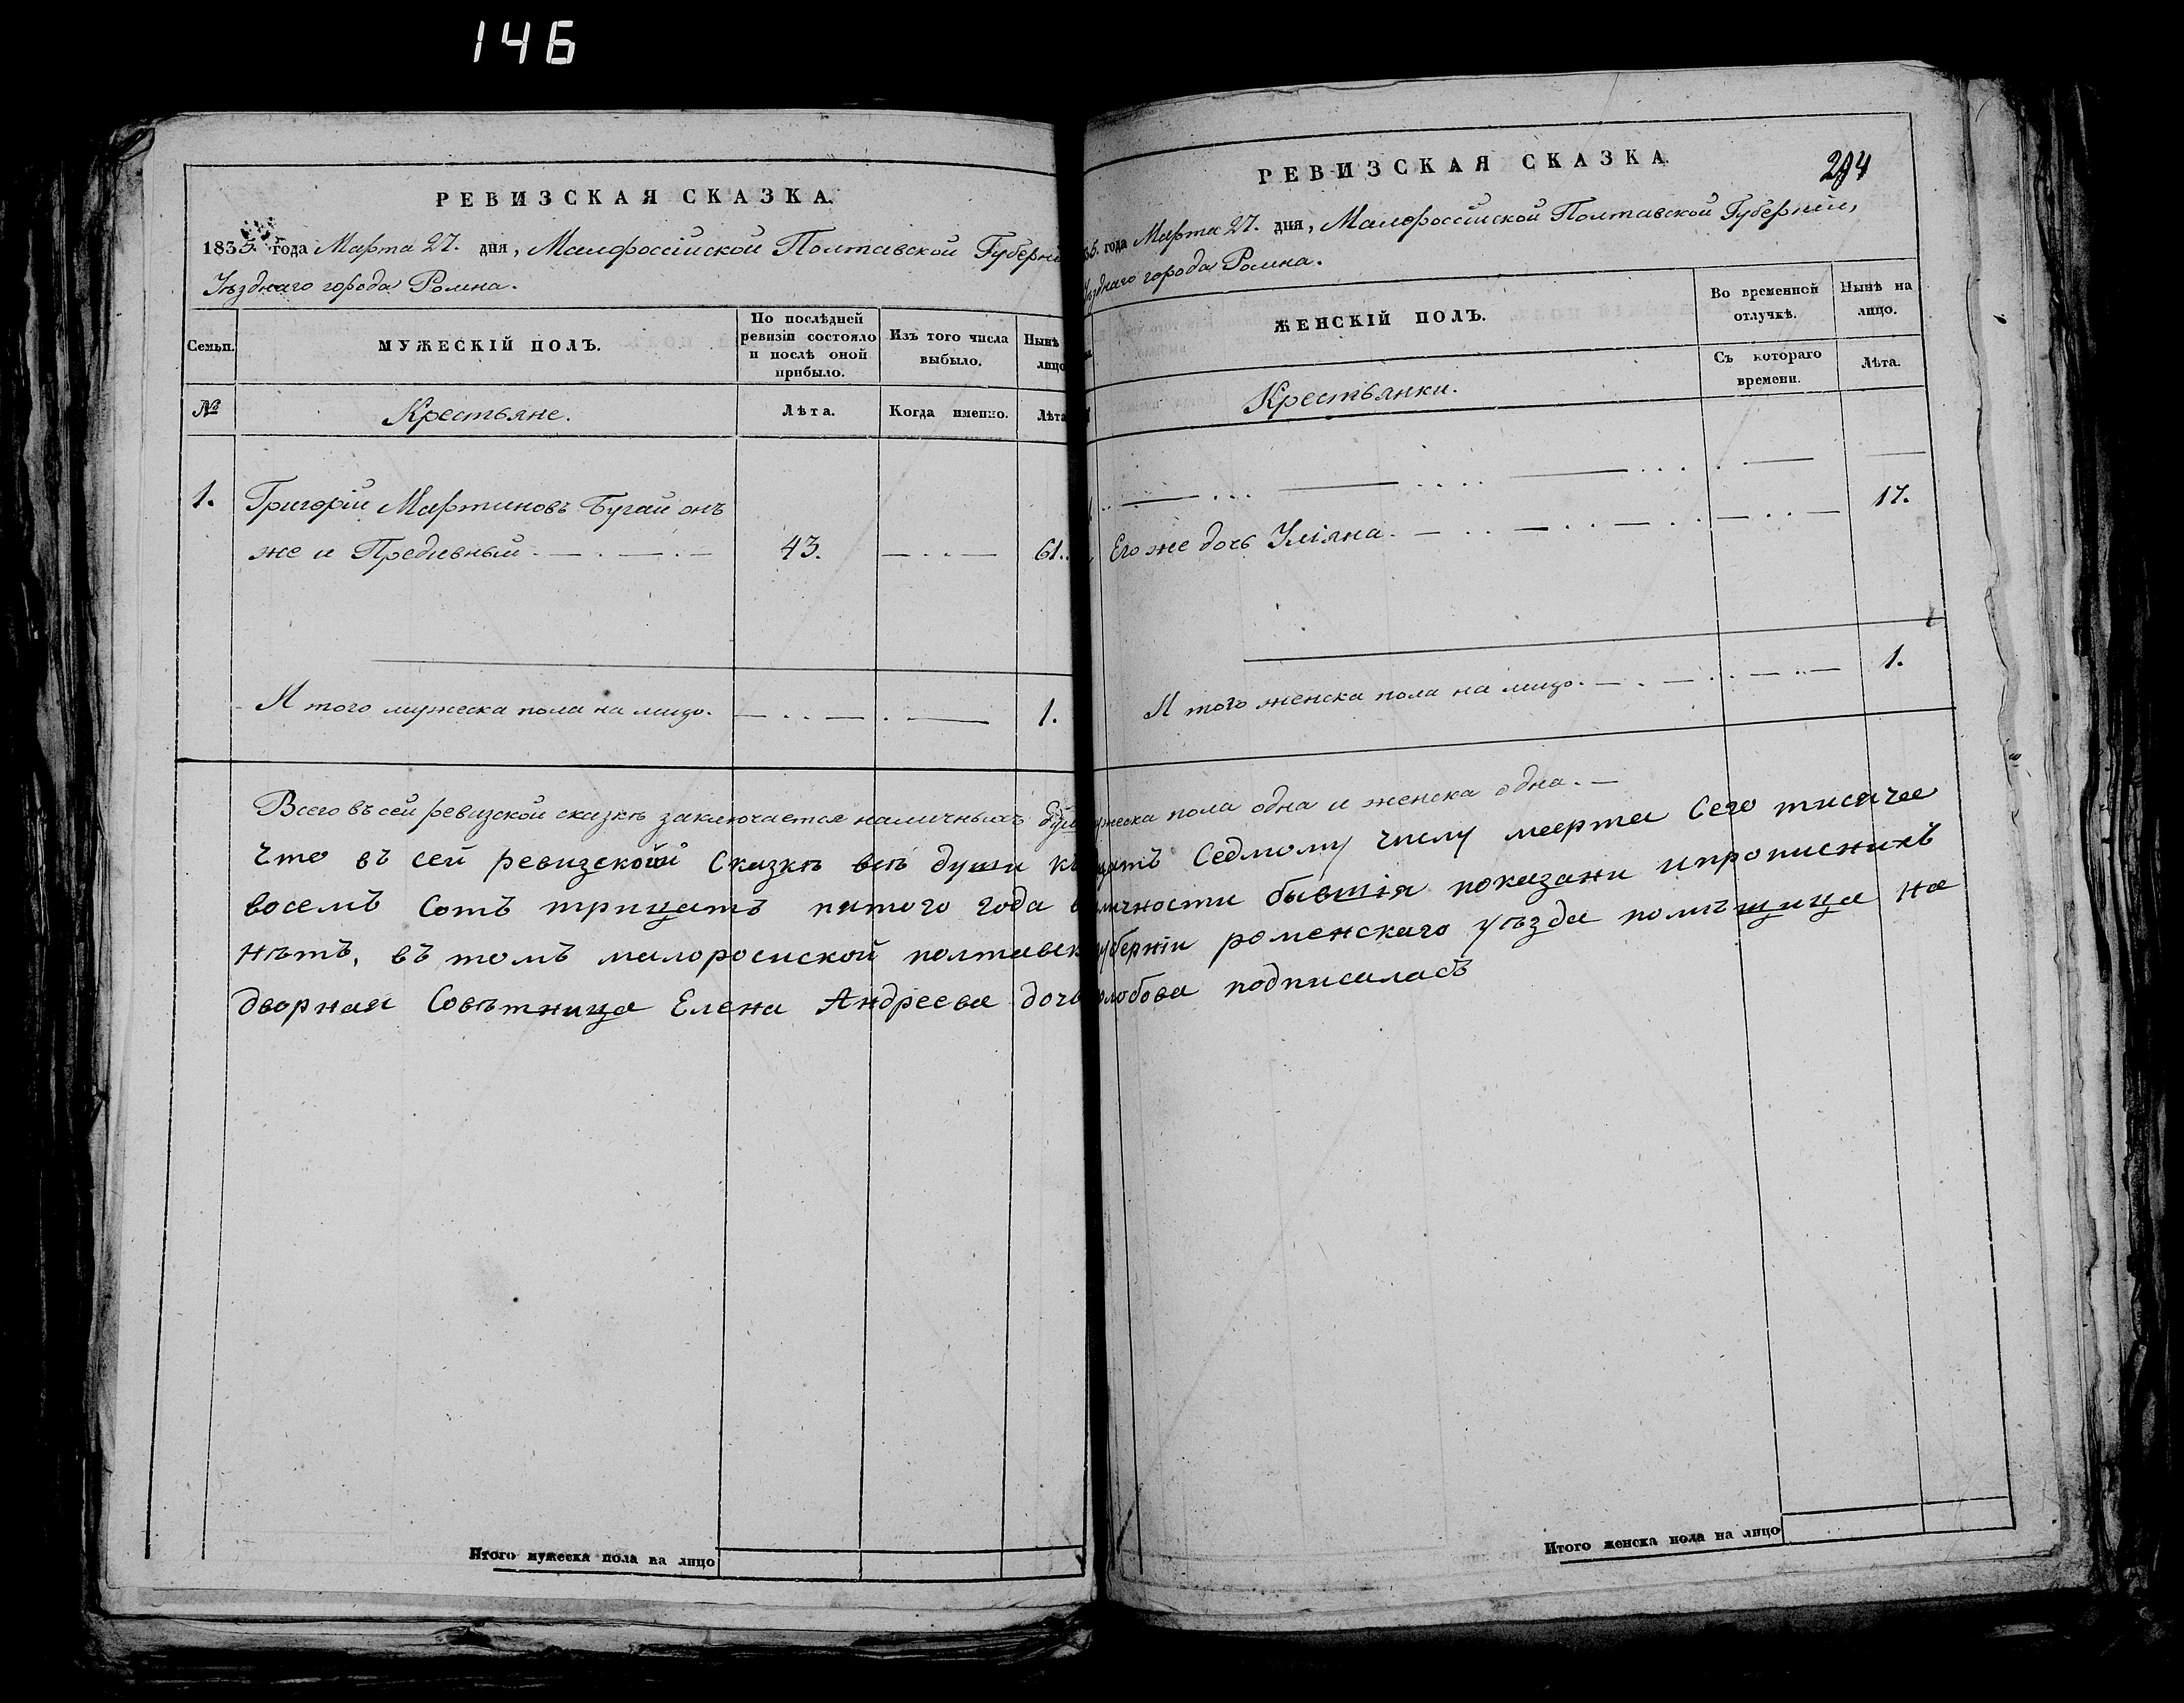 146
РЕВИЗСКАЯ СКАЗКА.
1835. года Марта 27. дня, Малороссійской Полтавской Губерні
Уѣзднаго города Ромна.
Семьи. МУЖЕСКІЙ ПОЛЪ. По послѣдней ревизіи состояло и послѣ оной прибыло. Изъ того числа выбыло. Нынѣ лицо
№ Крестьяне. Лѣта. Когда именно. Лѣта
1. Григорій Мартиновъ Бугай онъ
же и Предивный 43. 61.
И того мужеска пола на лицо. 1.
Всего въ сей ревизской сказкѣ заключается наличныхъ
Что въ сей ревизской Сказкѣ всѣ души къ
восемъ Сотъ трицатъ пятого года
нѣтъ, въ томъ малоросиской полтавск
дворная Совѣтница Елена Андреева дочь
Итого мужеска пола на лицо
РЕВИЗСКАЯ СКАЗКА.
204
35. года Марта 27. дня, Малороссійской Полтавской Губерніи,
Уѣзднаго города Ромна.
ЖЕНСКІЙ ПОЛЪ. Во временной отлучкѣ. Нынѣ на лицо.
Крестьянки. Съ котораго времени. Лѣта.
Его же дочь Уліяна. 17.
И того женска пола на лицо. 1.
ужеска пола одна и женска одна.
цатъ Седмому числу мерта Сего тисяче
личности бывшія показани ипрописнихъ
уберніи роменскаго уѣзда помѣщица На
олюбова подписаласъ
Итого женска пола на лицо